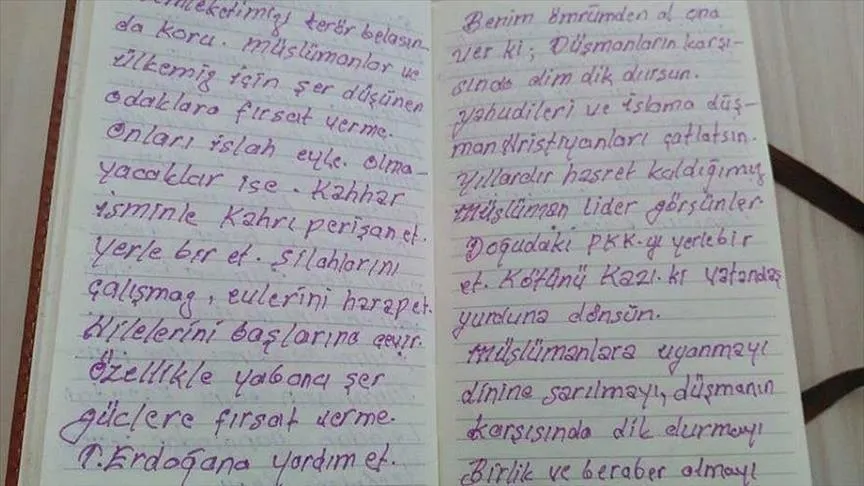 memleketimizi terör belasın-
da koru. Müslümanlar ve
ülkemiz için şer düşünen
odaklara fırsat verme.
Onları islah eyle. Olma-
yacaklar ise. Kahhar
isminle Kahrı perişan et.
yerle bir et. Silahlarını
çalışmaz, evlerini harap et.
Hilelerini başlarına çevir.
Özellikle yabancı şer
güclere fırsat verme.
T. Erdoğana yardım et.
Benim ömrümden al ona
ver ki; Düşmanların karşı-
sında dim dik dursun.
yahudileri ve islama düş-
man Hristiyanları çatlatsın.
Yıllardır hasret kaldığımız
Müslüman lider görsünler
Doğudaki PKK-yı yerlebir
et. Kötünü Kazı. ki vatandaş
yurduna dönsün.
Müslümanlara uyanmayı
dinine sarılmayı, düşmanın
karşısında dik durmayı
Birlik ve beraber olmayı